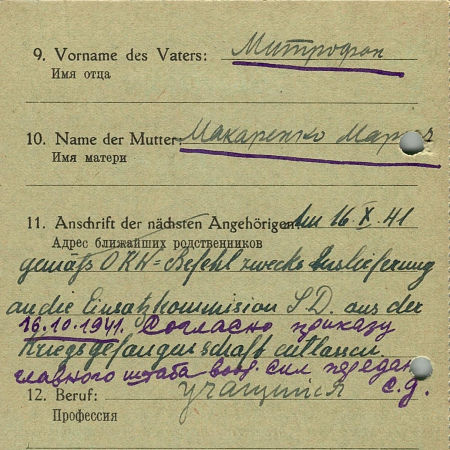 9. Vorname des Vaters: Митрофон
Имя отца
10. Name der Mutter: Макаренко Мария
Имя матери
11. Anschrift der nächsten Angehörigen: Am 16.X.41
Адрес ближайших родственников
gemäß OKW=Befehl zwecks Auslieferung
an die Einsatzkommission S.D. aus der
16.10.1941. Согласно приказу
Kriegsgefangenschaft entlassen.
главного штаба воор. сил передан
12. Beruf: учащийся С.Д.
Профессия